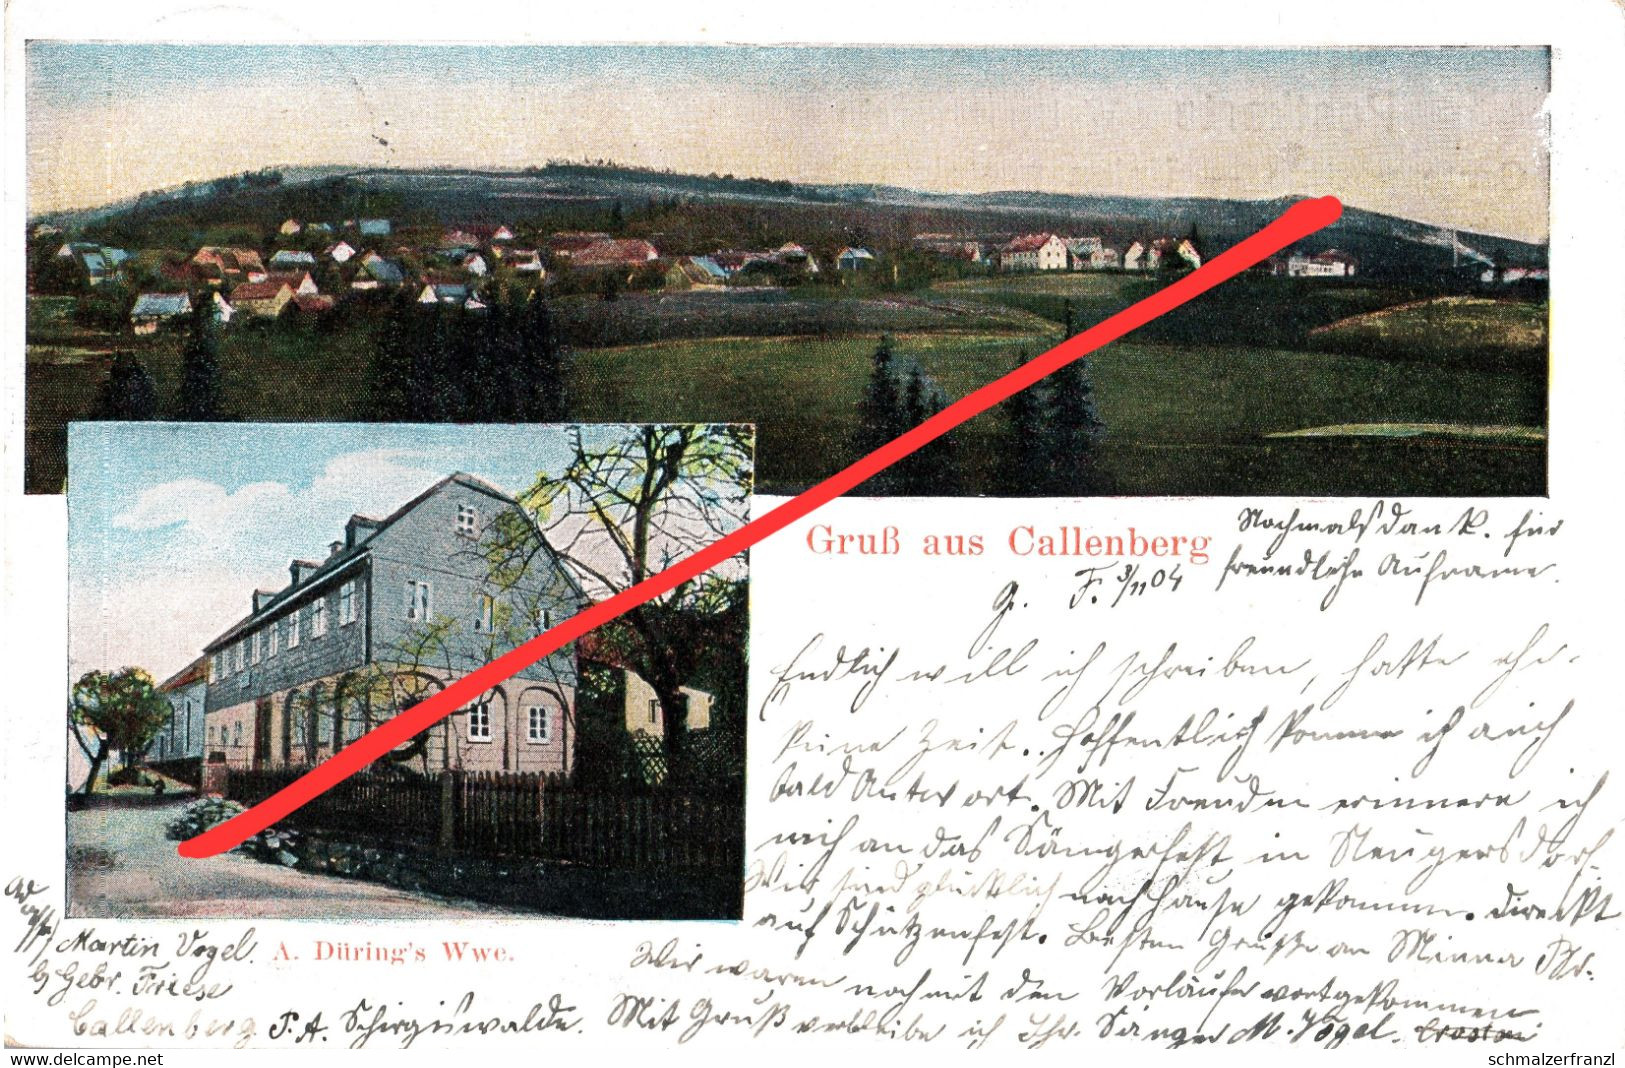 Gruß aus Callenberg
Nochmals Dank. für
freundliche Aufname.
G. F. 3/11 04
Endlich will ich schreiben, hatte eher
keine Zeit. Hoffentlich komme ich auch
bald Antwort. Mit Freuden erinnere ich
mich an das Sängerfest in Neugersdorf.
Wir sind glücklich nach Hause gekommen. Direckt
auf Schützenfest. Besten Grüße an Minna
Wir waren noch mit den Vorläufer vortgekommen
Mit Gruß verbleibe ich Ihr. Sänger M. Vogel.
A. Düring's Wwe.
Martin Vogel.
b/ Gebr. Friese
Callenberg P. A. Schirgiswalde.
schmalzerfranzl